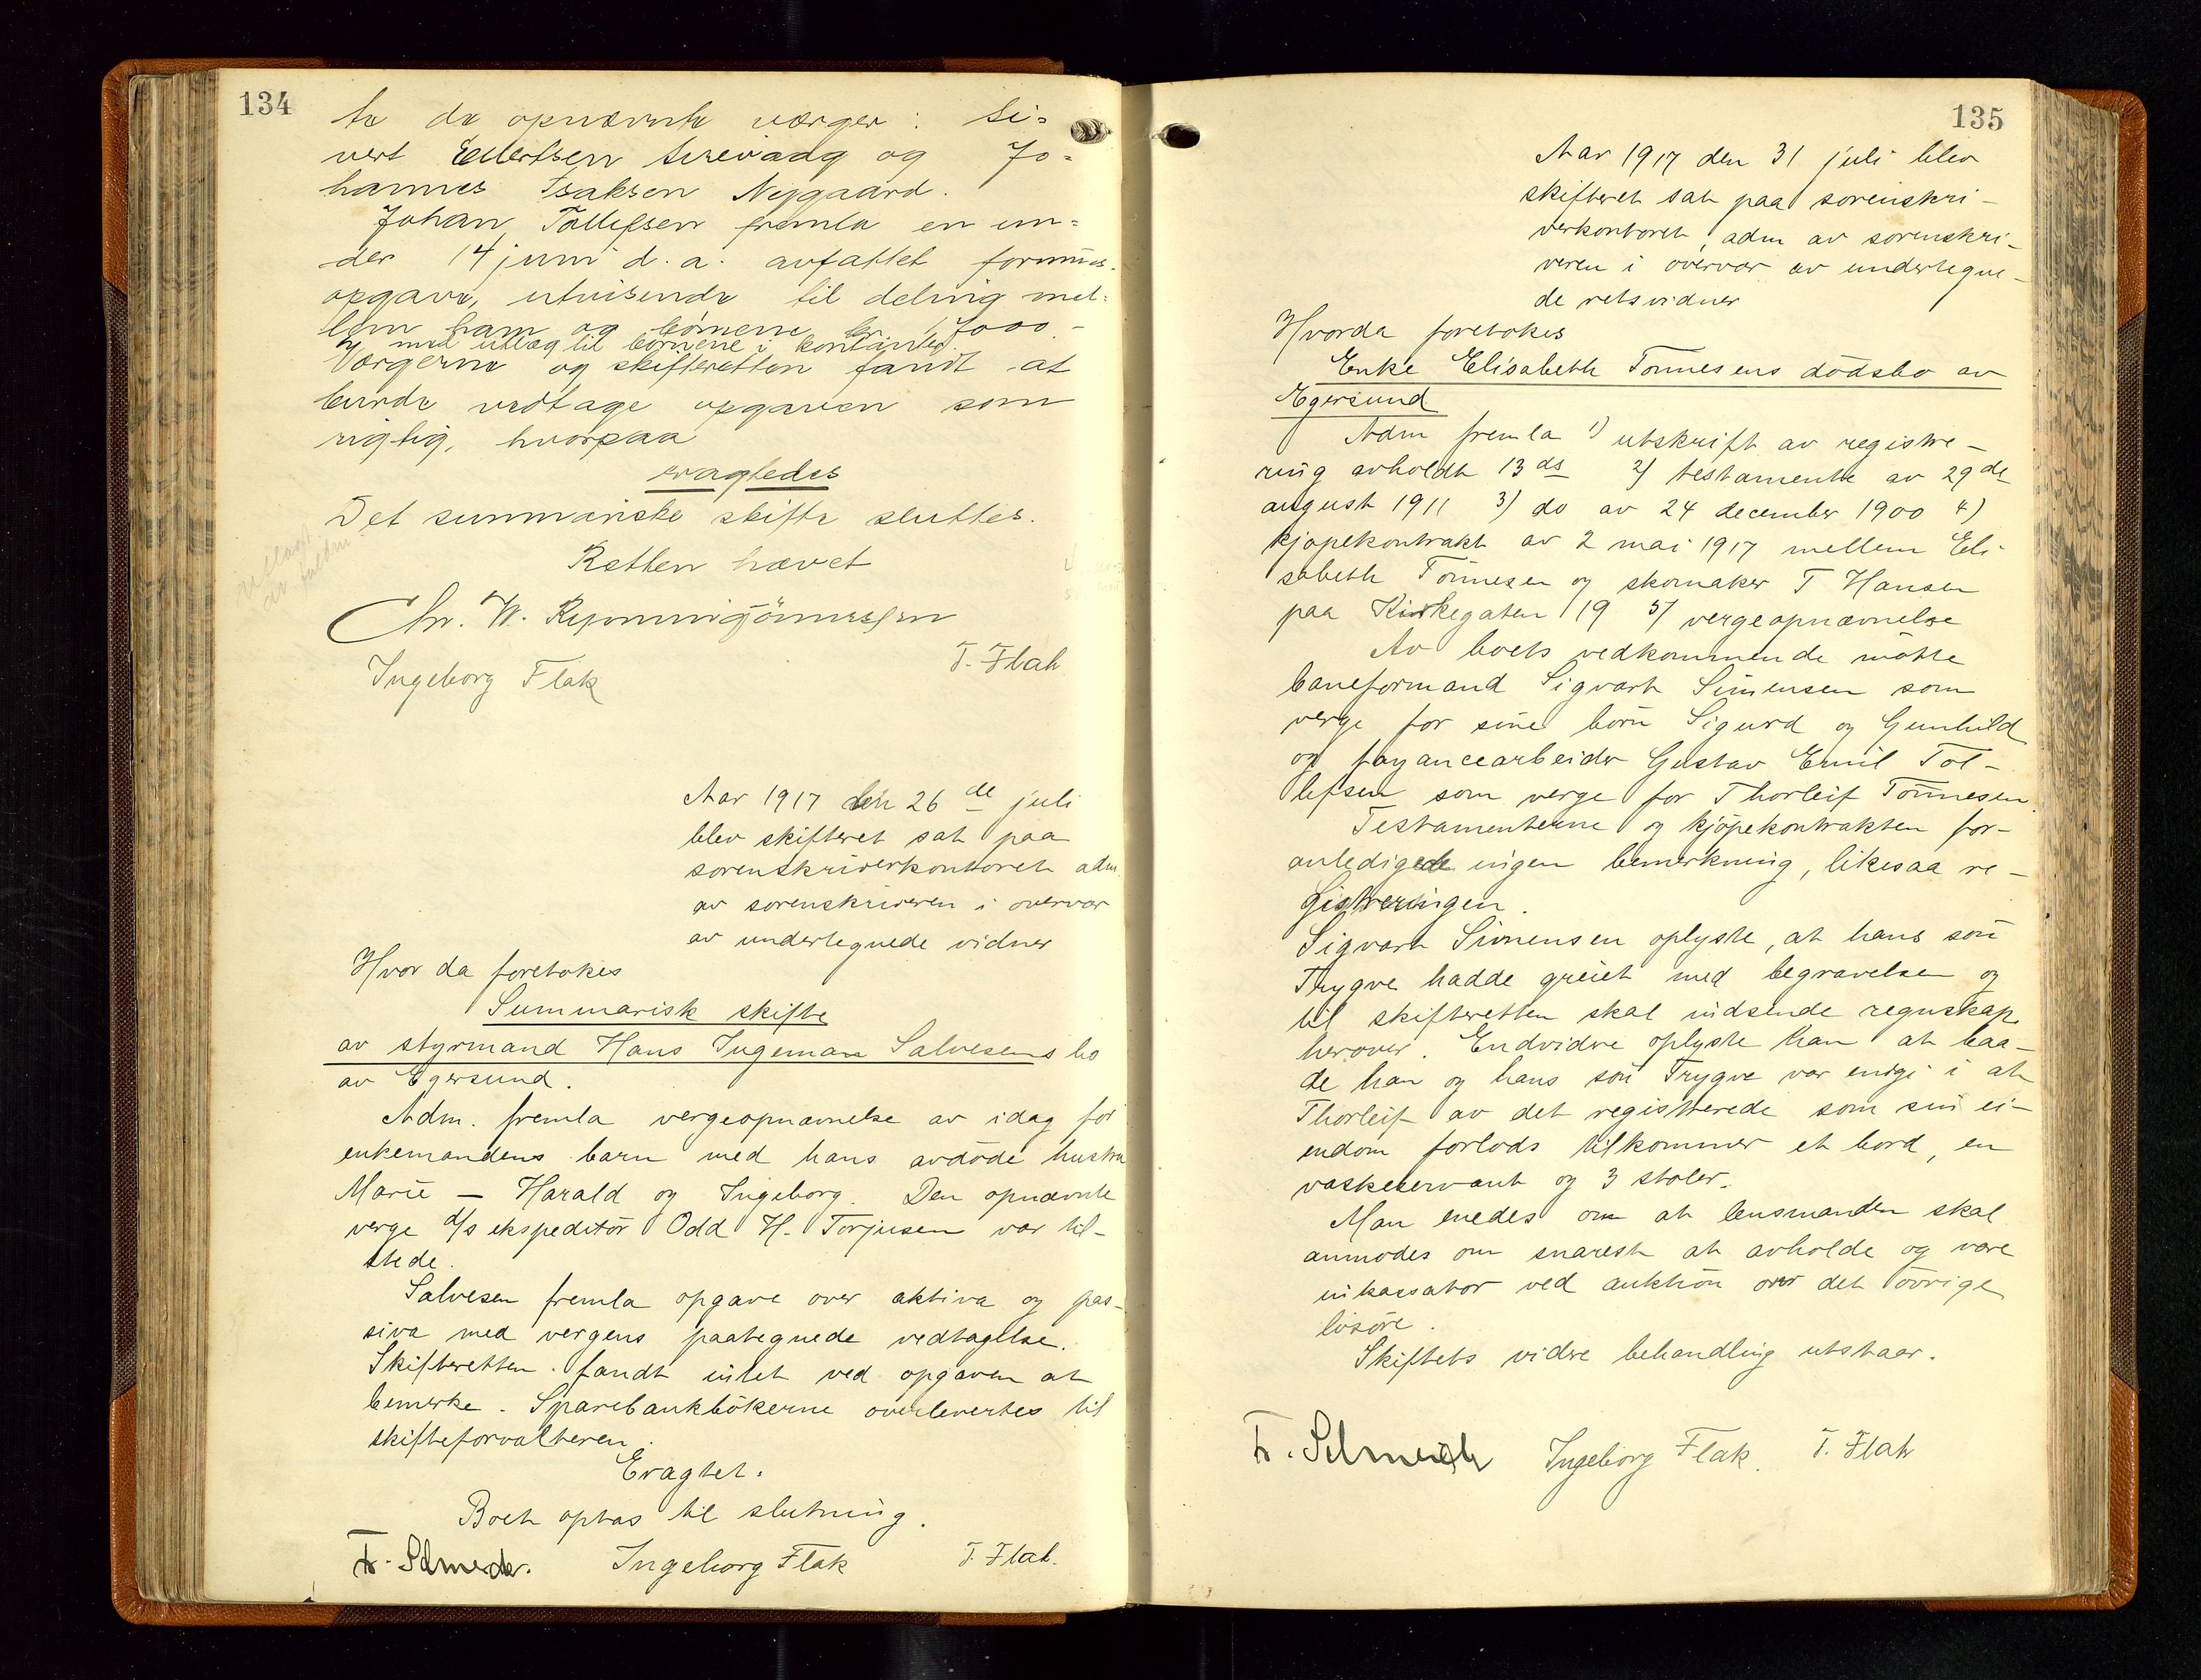 134
te de opnævnte værger: Si=
vert Ellertsen Sirevaag og Jo=
hannes Isaksen Nygaard.
Johan Tollefsen fremla en un=
der 14 juni d.a. avfattet formues-
opgave, utvisende til deling mel=
lem ham og børnene kr 17000 -
med utlæg til børnene i kontanter.
Værgerne og skifteretten fandt at
burde vedtage opgaven som
rigtig, hvorpaa
eragtedes
Det summariske skifte sluttes.
Retten hævet
Chr. W.
Ingeborg Flak T. Flak
Aar 1917 den 26 de juli
blev skifteret sat paa
sorenskriverkontoret adm.
av sorenskriveren i overvær
av undertegnede vidner
Hvor da foretokes
Summarisk skifte
av styrmand Hans Ingeman Salvesens bo
av Egersund.
Adm. fremla vergeopnævnelse av idag for
enkemandens barn med hans avdøde hustru
Marie — Harald og Ingeborg. Den opnævnte
verge d/s ekspeditør Odd H. Torjusen var til-
stede.
Salvesen fremla opgave over aktiva og pas-
siva med vergens paategnede vedtagelse.
Skifteretten fandt intet ved opgaven at
bemerke. Sparebankbøkerne overlevertes til
skifteforvalteren.
Eragtet.
Boet optas til slutning.
Ingeborg Flak T. Flak.
135
Aar 1917 den 31 juli blev
skifteret sat paa sorenskri-
verkontoret, adm av sorenskri-
veren i overvær av undertegne-
de retsvidner
Hvorda foretokes
Enke Elisabeth Tønnesens dødsbo av
Egersund
Adm fremla 1) utskrift av registre-
ring avholdt 13 ds 2) testamente av 29 de
august 1911 3) do av 24 december 1900 4)
kjøpekontrakt av 2 mai 1917 mellem Eli-
sabeth Tønnesen og skomaker T Hansen
paa Kirkegaten 19 5) vergeopnævnelse
Av boets vedkommende møtte
baneformand Sigvart Simensen som
verge for sine børn Sigurd og Gunhild
og fayancearbeider Gustav Emil Tol-
lefsen som verge for Thorleif Tønnesen.
Testamenterne og kjøpekontrakten for-
anledigede ingen bemerkning, likesaa re-
gistreringen.
Sigvart Simensen oplyste, at hans søn
Trygve hadde greiet med begravelsen og
til skifteretten skal indsende regnskap
herover. Endvidre oplyste han at baa-
de han og hans søn Trygve var enige i at
Thorleif av det registrerede som sin ei-
endom forlods tilkommer et bord, en
vaskeservant og 3 stoler.
Man enedes om at lensmanden skal
anmodes om snarest at avholde og være
inkassator ved auktion over det øvrige
løsøre.
Skiftets videre behandling utstaar.
Ingeborg Flak. T. Flak